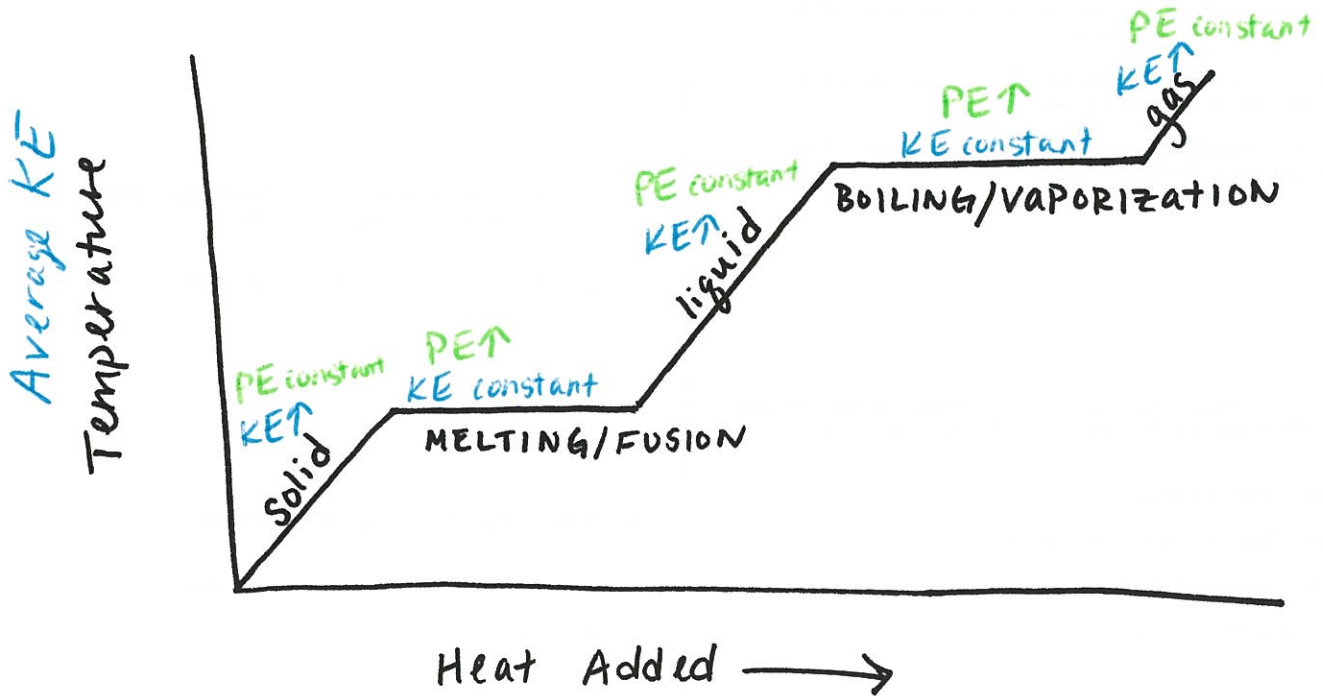 Average KE
Temperature
PE constant
KE↑
Solid
PE↑
KE constant
MELTING/FUSION
PE constant
KE↑
liquid
PE↑
KE constant
BOILING/VAPORIZATION
PE constant
KE↑
gas
Heat Added →